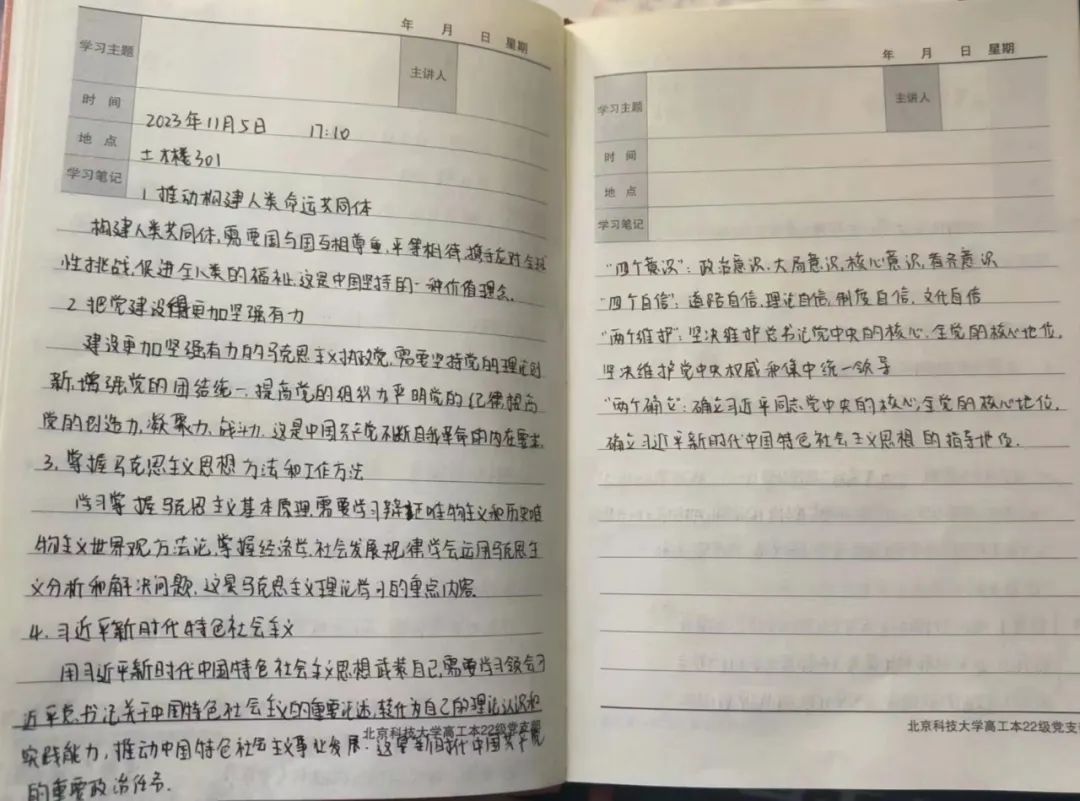 年 月 日 星期
学习主题
主讲人
时 间
2023年11月5日 17:10
地 点
土木楼301
学习笔记
1. 推动构建人类命运共同体
构建人类共同体,需要国与国互相尊重,平等相待,携手应对全球
性挑战,促进全人类的福祉,这是中国坚持的一种价值理念.
2. 把党建设得更加坚强有力
建设更加坚强有力的马克思主义执政党,需要坚持党的理论创
新,增强党的团结统一,提高党的组织力,严明党的纪律,提高
党的创造力,凝聚力,战斗力,这是中国共产党不断自我革命的内在要求.
3. 掌握马克思主义思想方法和工作方法
学习掌握马克思主义基本原理,需要学习辩证唯物主义和历史唯
物主义世界观,方法论,掌握经济学,社会发展规律,学会运用马克思主
义分析和解决问题,这是马克思主义理论学习的重点内容.
4. 习近平新时代特色社会主义
用习近平新时代中国特色社会主义思想武装自己,需要学习领会习
近平总书记关于中国特色社会主义的重要论述,转化为自己的理论认识和
实践能力,推动中国特色社会主义事业发展.这是新时代中国共产党
的重要政治任务.
北京科技大学高工本22级党支部
年 月 日 星期
学习主题
主讲人
时 间
地 点
学习笔记
"四个意识":政治意识,大局意识,核心意识,看齐意识
"四个自信":道路自信,理论自信,制度自信,文化自信
"两个维护":坚决维护总书记党中央的核心,全党的核心地位,
坚决维护党中央权威和集中统一领导
"两个确立":确立习近平同志党中央的核心,全党的核心地位,
确立习近平新时代中国特色社会主义思想的指导地位.
北京科技大学高工本22级党支